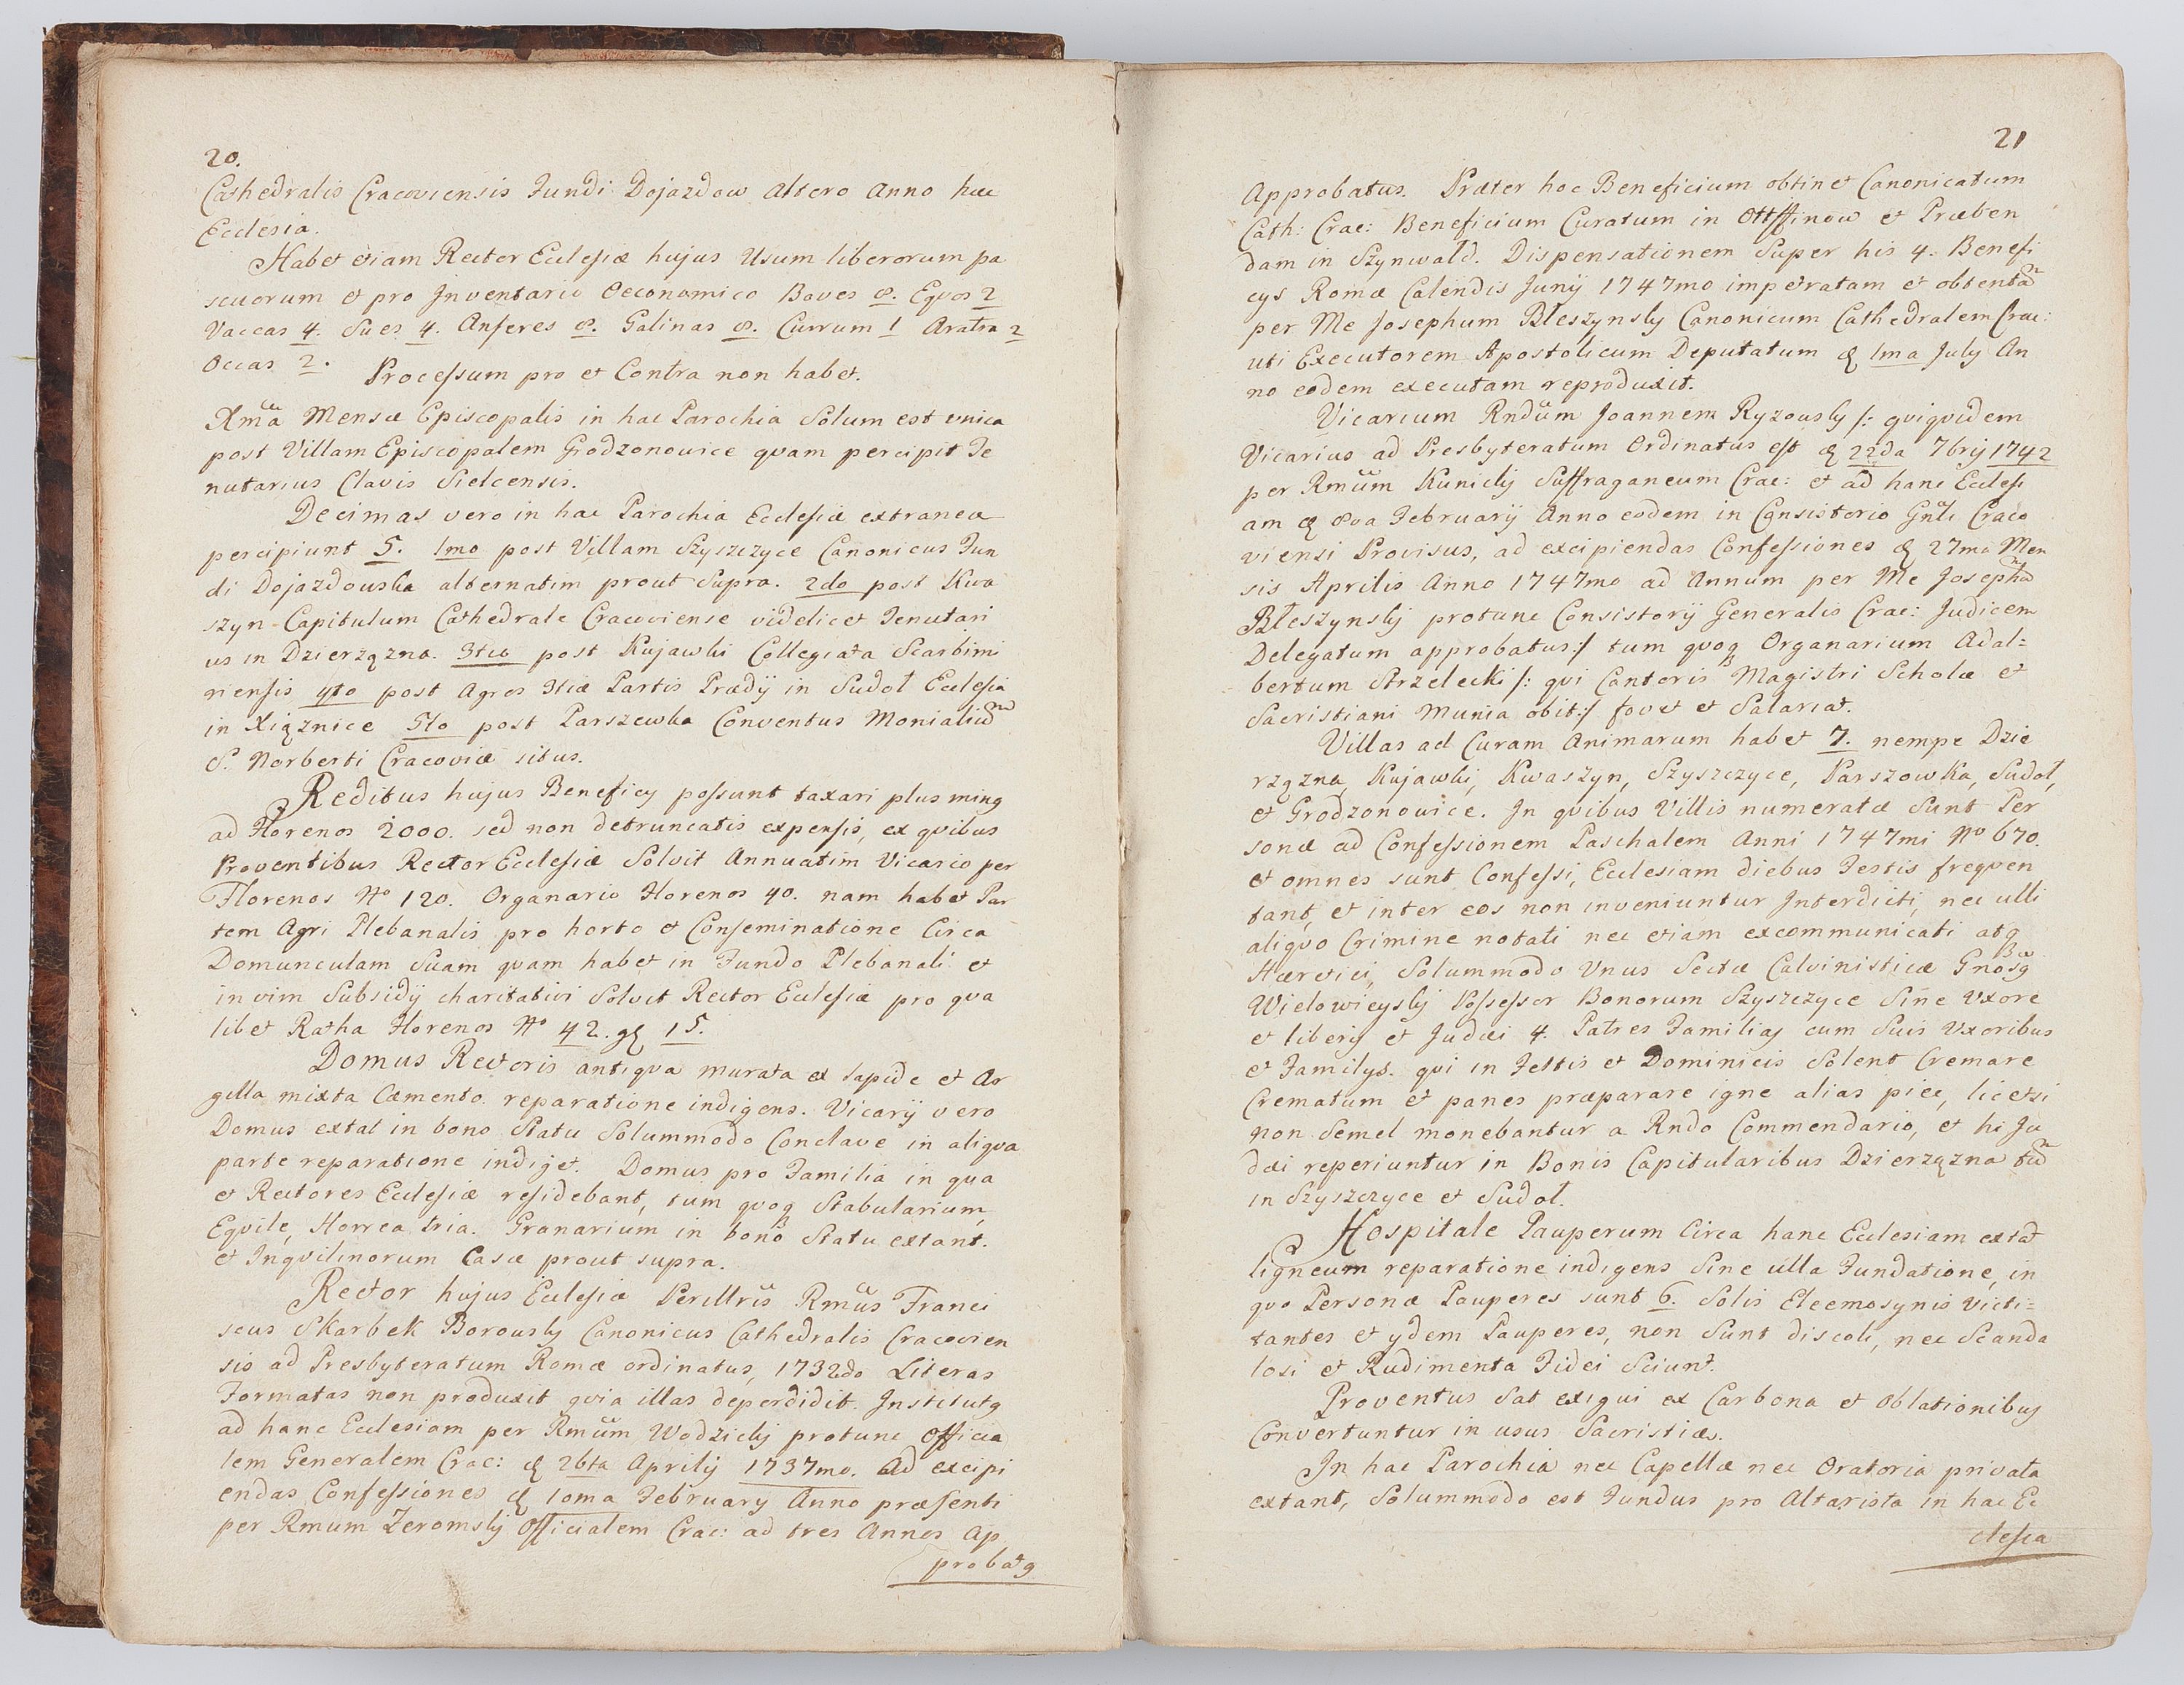 20.
Cathedralis Cracoviensis Fundi Dojazdow altero anno hac
Ecclesia.
Habet etiam Rector Ecclesiæ hujus Usum liberorum pa
scuorum et pro Inventario Oeconomico Boves 8. Eqvos 2
Vaccas 4. Sues 4. Anseres 8. Galinas 8. Currum 1 Aratra 2
Occas 2. Processum pro et Contra non habet.
Mensæ Episcopalis in hac Parochia Solum est unica
post Villam Episcopalem Grodzonowice qvam percipit Te
nutarius Clavis Sielcensis.
Decimas vero in hac Parochia Ecclesiæ extraneæ
percipiunt 5. 1mo post Villam Szyszczyce Canonicus Fun
di Dojazdowska alternatim prout Supra. 2do post Kwa
szyn Capitulum Cathedrale Cracoviense videlicet Tenutari
us in Dzierzązna. 3tio post Kujawki Collegiata Scarbimi
riensis 4to post Agros Partis Prædij in Sudoł Ecclesia
in Xiąznice 5to post Parszewka Conventus Monialiũ
S. Norberti Cracoviæ situs.
Reditus hujus Beneficy possunt taxari plus minq
ad Florenos 2000. sed non detruncatis expensis, ex qvibus
Proventibus Rector Ecclesiæ Solvit Annuatim Vicario per
Florenos No 120. Organario Florenos 40. nam habet Par
tem Agri Plebanalis pro horto et Conseminatione Circa
Domunculam Suam qvam habet in Fundo Plebanali et
in vim Subsidij charitativi Solvit Rector Ecclesiæ pro qva
libet Ratha Florenos No 42. gę 15.
Domus Rectoris antiqva murata ex lapide et Ar
gilla mixta Cæmento reparatione indigens. Vicarij vero
Domus extat in bono Statu Solummodo Conclave in aliqva
parte reparatione indiget. Domus pro Familia in qva
et Rectores Ecclesiæ residebant, tum qvoq Stabularium,
Eqvile, Horrea tria. Granarium in bono Statu extant.
et Inqvilinorum Casæ prout supra.
Rector hujus Ecclesiæ Perillris Rmus Franci
scus Skarbek Borowsky Canonicus Cathedralis Cracovien
sis ad Presbyteratum Romæ ordinatus, 1732do Literas
Formatas non produxit qvia illas deperdidit. Institutq
ad hanc Ecclesiam per Rmum Wodzicky protunc Officia
lem Generalem Crac: & 26ta Aprilij 1737mo. Ad excipi
endas Confessiones & 10ma February Anno præsenti
per Rmum Zeromsky Officialem Crac: ad tres Annos Ap
probatq
21
Approbatus. Præter hoc Beneficium obtinet Canonicatum
Cath: Crac: Beneficium Curatum in Ottffinow et Præben
dam in Szynwald. Dispensationem Super his 4. Benefi
cys Romæ Calendis Junij 1747mo impetratam et obtentã
per Me Josephum Błeszynsky Canonicum Cathedralem Crac:
uti Executorem Apostolicum Deputatum & 1ma July An
no eodem executam reproduxit.
Vicarium Rndum Joannem Ryzowsky /: qviqvidem
Vicarius ad Presbyteratum Ordinatus est & 22da 7brij 1742
per Rmum Kunicky Suffraganeum Crac: et ad hanc Ecclesi
am & 8va Februarij Anno eodem in Consistorio Gnli Craco
viensi Provisus, ad excipiendas Confessiones & 27ma Men
sis Aprilis Anno 1747mo ad Annum per Me Josephũ
Błeszynsky protunc Consistorij Generalis Crac: Judicem
Delegatum approbatus:/ tum qvoq Organarium Adal-
bertum Strzelecki /: qvi Cantoris Magistri Scholæ et
Sacristiani Munia obit:/ fovet et Salariat.
Villas ad Curam Animarum habet 7. nempe Dzie
rzązna, Kujawki, Kwaszyn, Szyszczyce, Parszowka, Sudoł,
et Grodzonowice. In qvibus Villis numeratæ Sunt Per
sonæ ad Confessionem Paschalem Anni 1747mi No 670.
et omnes sunt Confessi, Ecclesiam diebus Festis freqven
tant, et inter eos non inveniuntur Interdicti, nec ulli
aliqvo Crimine notati nec etiam excommunicati atq
Hæretici, Solummodo Unus Sectæ Calvinisticæ Gnosq
Wielowieysky Possessor Bonorum Szyszczyce Sine Uxore
et liberis et Judæi 4. Patres Familias cum Suis Uxoribus
et Familys. qvi in Festis et Dominicis Solent Cremare
Crematum et panes præparare igne alias piec, licetsi
non Semel monebantur a Rndo Commendario, et hi Ju
dæi reperiuntur in Bonis Capitularibus Dzierzązna tũ
in Szyszczyce et Sudoł.
Hospitale Pauperum Circa hanc Ecclesiam extat
ligneum reparatione indigens Sine ulla Fundatione, in
qvo Personæ Pauperes sunt 6. Solis Eleemosynis victi-
tantes et ydem Pauperes, non Sunt discoli, nec Scanda
losi et Rudimenta Fidei Sciunt.
Proventus Sat exigui ex Carbona et Oblationibus
Convertuntur in usus Sacristiæ.
In hac Parochia nec Capellæ nec Oratoria privata
extant, Solummodo est Fundus pro Altarista in hac Ec
clesia